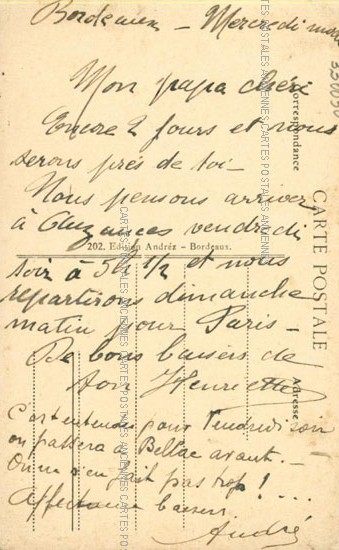 Bordeaux – Mercredi
Mon papa chéri
Encore 2 jours et nous
serons près de toi –
Nous pensons arriver
à Auzances vendredi
202. Edition Andréz – Bordeaux.
soir à 5h 1/2 et nous
repartirons dimanche
matin pour Paris –
De bons baisers de
ton Henriette
C'est entendu pour Vendredi soir
on passera à Bellac avant. –
On ne s'en fait pas trop ! ...
Affectueux baisers.
André
CARTE POSTALE
Correspondance
Adresse
CARTES POSTALES ANCIENNES